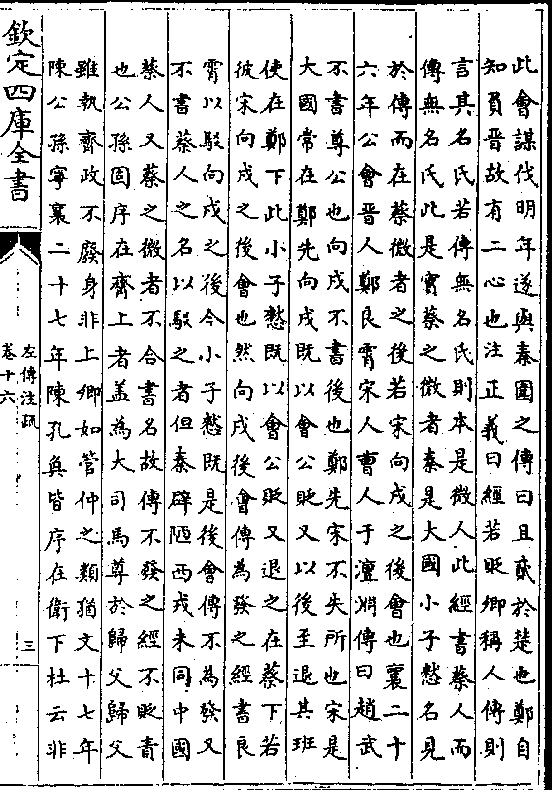 此會謀伐明年遂與秦圍之傳曰且貳於楚也鄭自
知負晉故有二心也注正義曰經若貶卿稱人傳則
言其名氏若傳無名氏則本是微人此經書蔡人而
傳無名氏此是實蔡之微者秦是大國小子憖名見
於傳而在蔡微者之後若宋向戌之後會也襄二十
六年公會晉人鄭良霄宋人曹人于澶淵傳曰趙武
不書尊公也向戌不書後也鄭先宋不失所也宋是
大國常在鄭先向戌既以會公貶又以後至退其班
使在鄭下此小子憖既以會公貶又退之在蔡下若
彼宋向戌之後會也然向戌後會傳為發之經書良
霄以駁向戌之後今小子憖既是後會傳不為發又
不書蔡人之名以駁之者但秦辟陋西戎未同中國
蔡人又蔡之微者不合書名故傳不發之經不貶責
也公孫固序在齊上者盖為大司馬尊於歸父歸父
雖執齊政不廢身非上卿如管仲之類猶文十七年
陳公孫寧襄二十七年陳孔奐皆序在衛下杜云非
欽定四庫全書
左傳注疏
卷十六
三